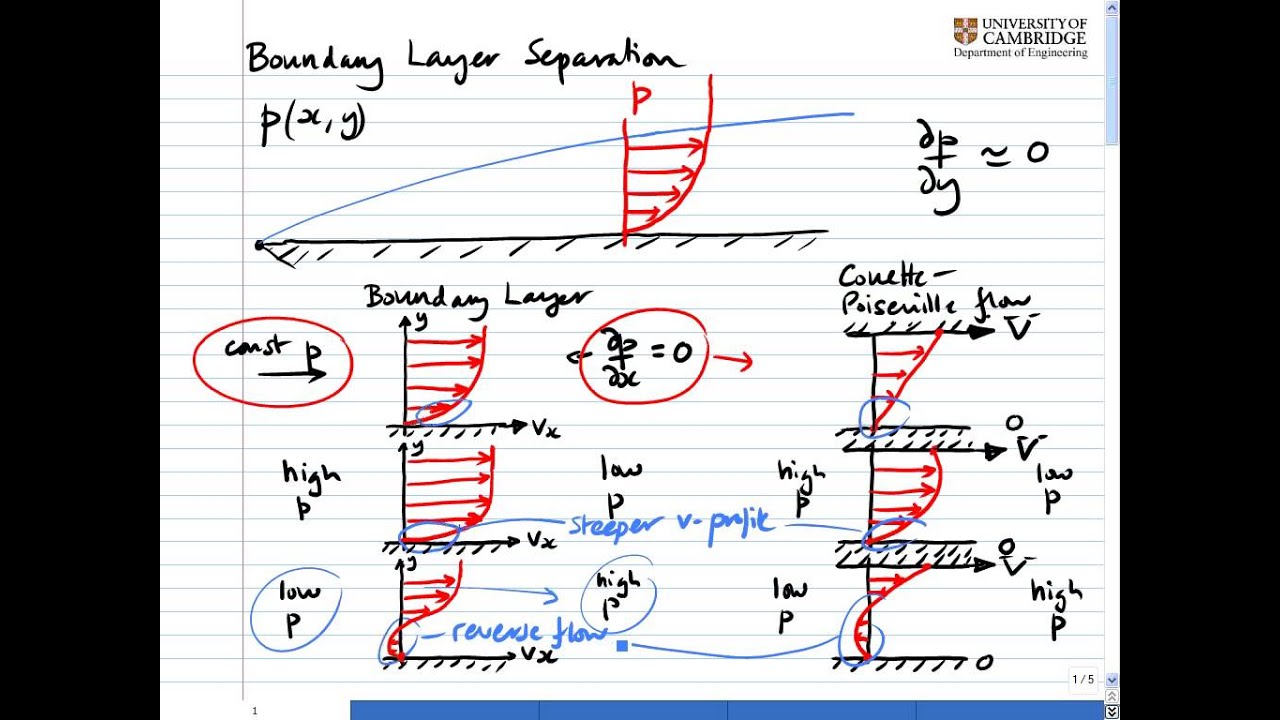 UNIVERSITY OF
CAMBRIDGE
Department of Engineering
Boundary Layer Separation
p(x, y)
p
∂p/∂y ≃ 0
Boundary Layer
Couette-
Poiseuille flow
y
V
const p
∂p/∂x = 0
Vx
0
y
V
high
p
low
p
high
p
low
p
steeper v-profile
Vx
0
y
V
low
p
high
p
low
p
high
p
reverse flow
Vx
0
1 / 5
1